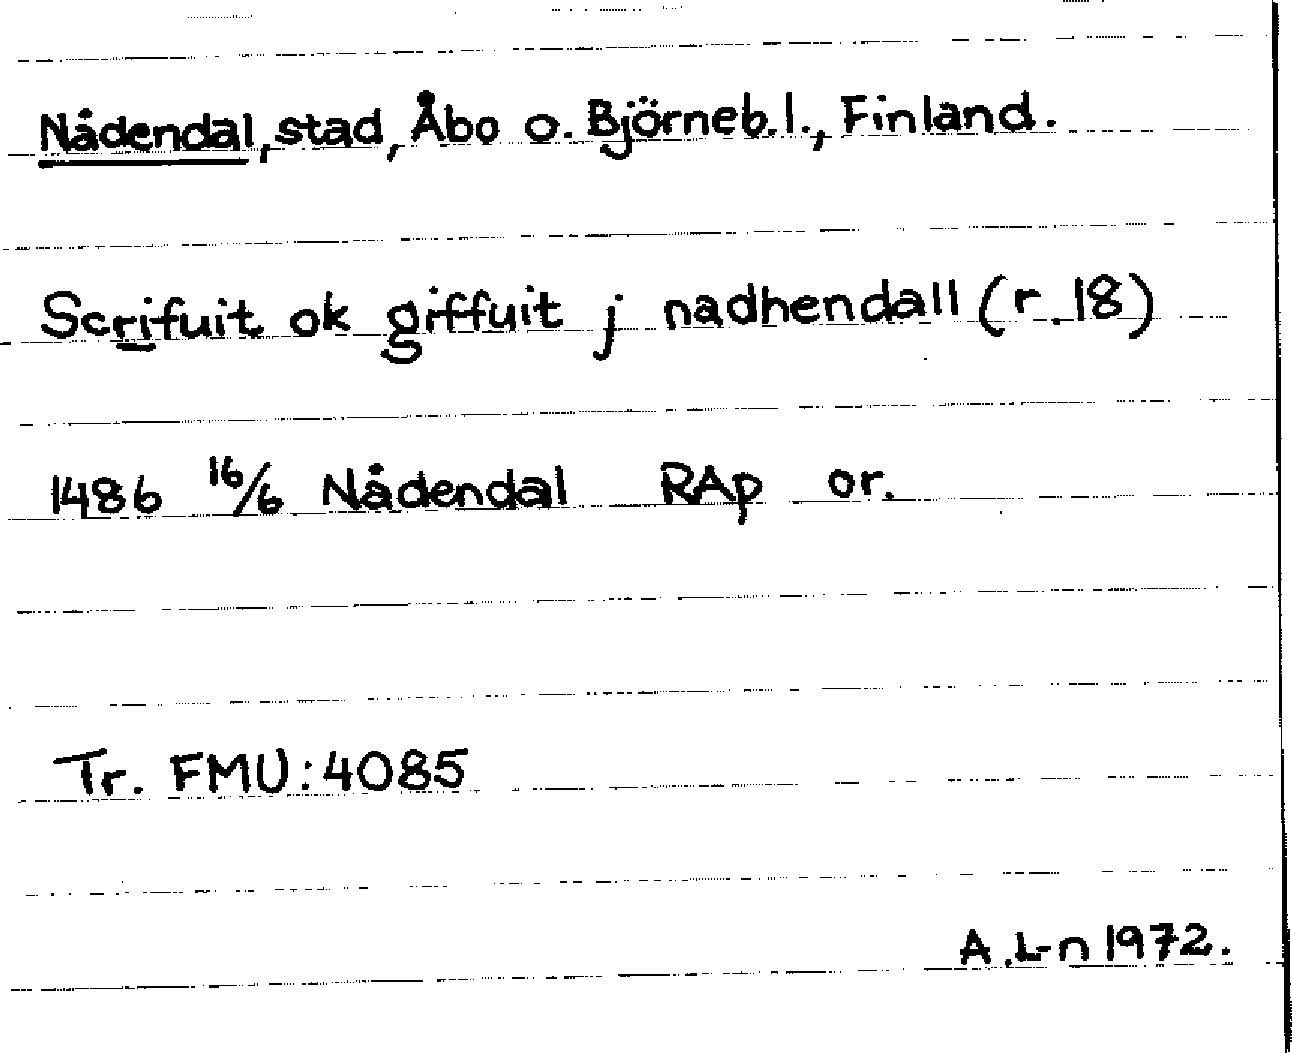 Nådendal, stad, Åbo o. Björneb.l., Finland.
Scrifuit ok giffuit j nadhendall (r. 18)
1486 16/6 Nådendal RAp or.
Tr. FMU: 4085
A.L-n 1972.